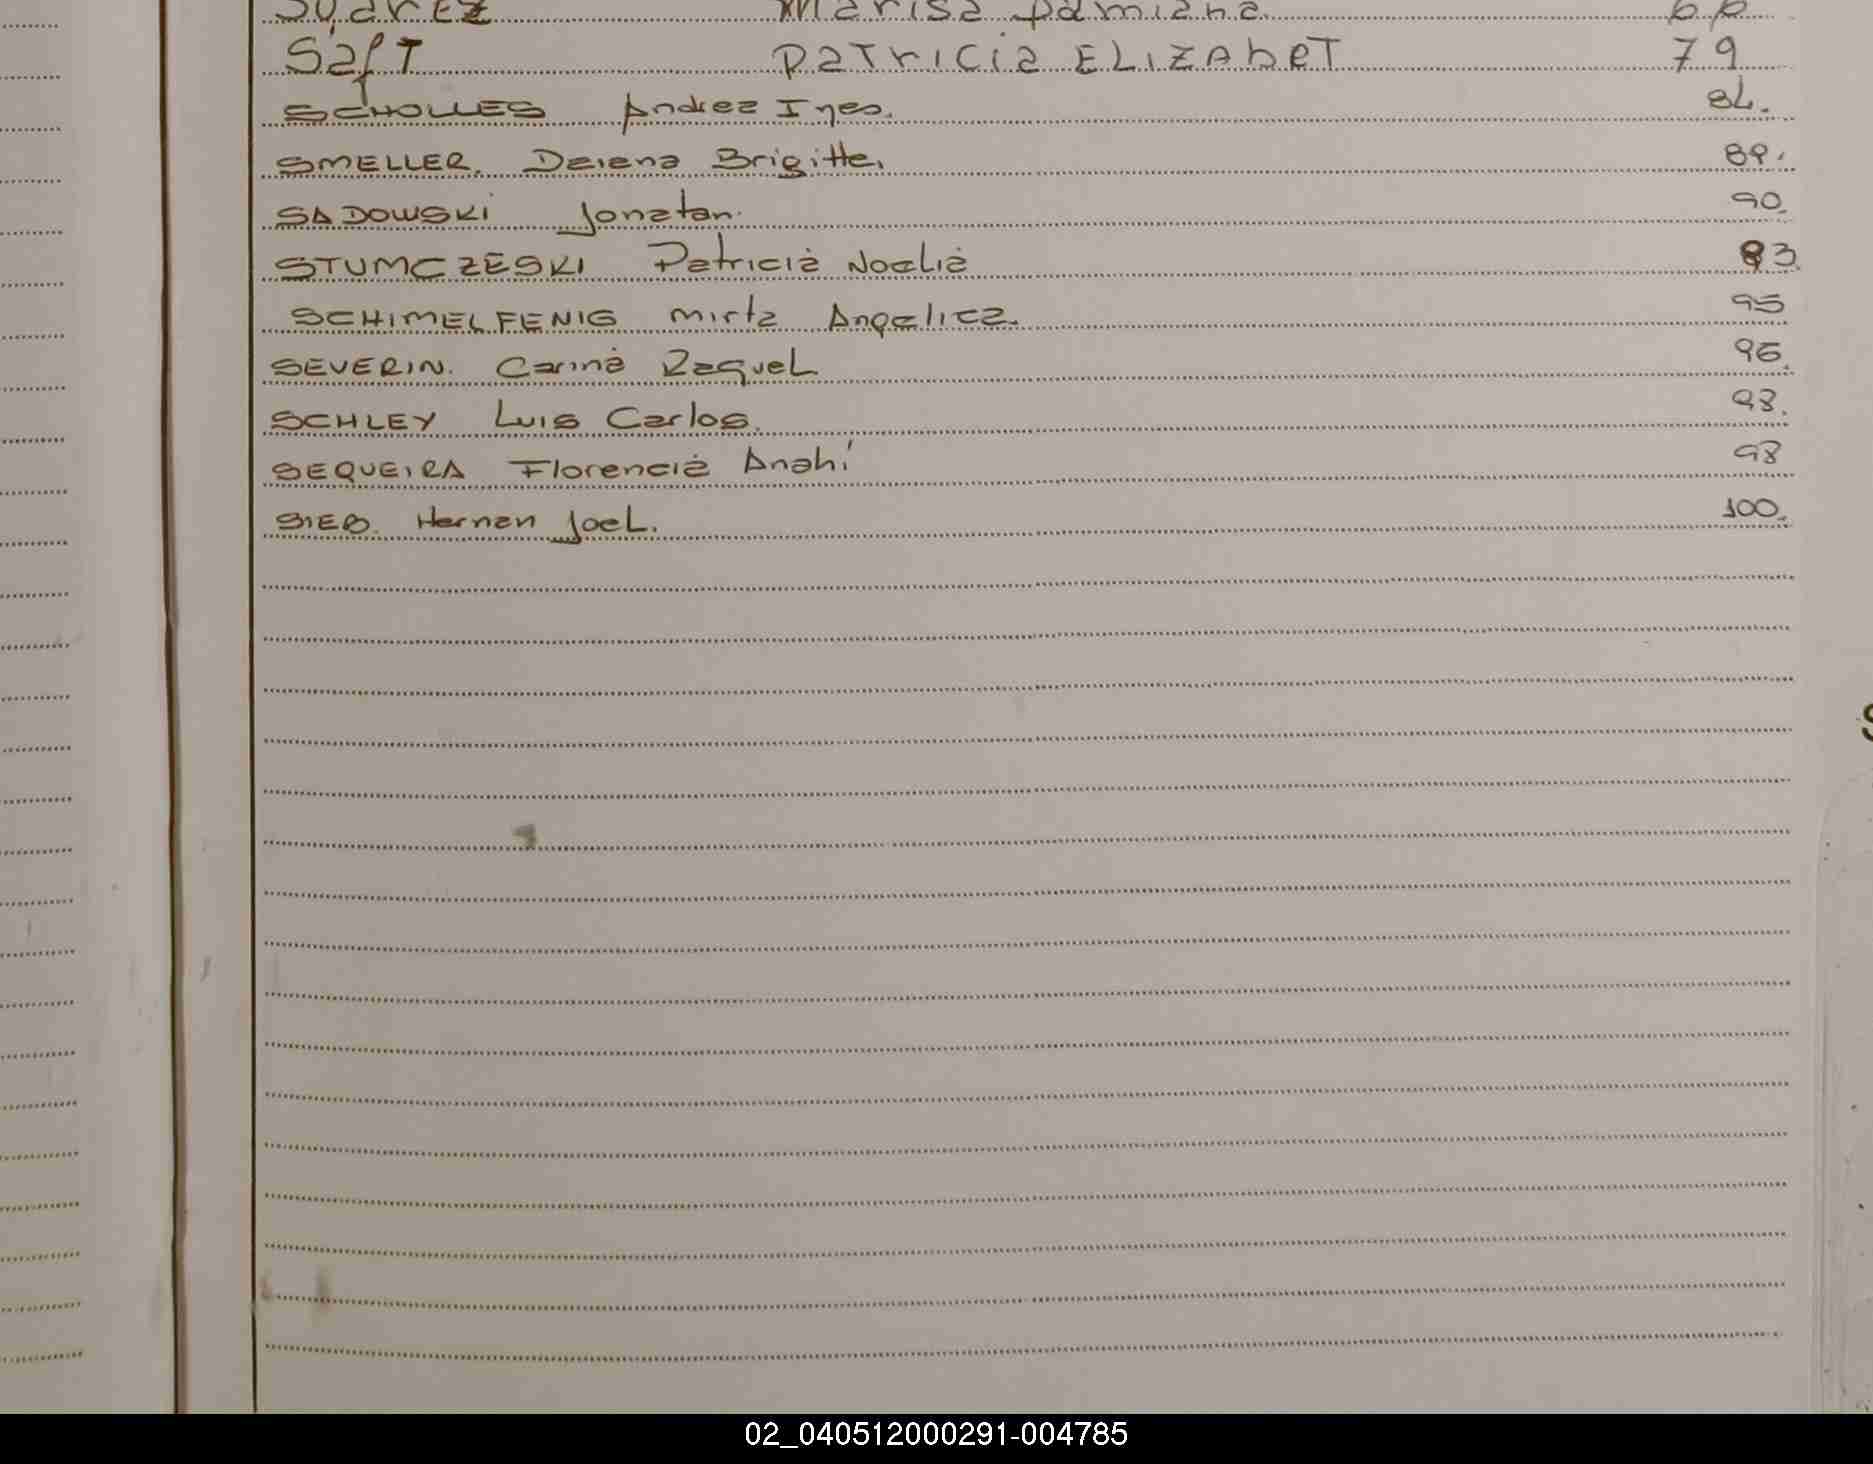 Suarez Marisa Damiana 66
Saft PATRICIA ELIZAbeT 79
SCHOLLES Andrea Ines. 84.
SMELLER. Daiana Brigitte. 89.
SADOWSKI Jonatan. 90.
STUMCZESKI Patricia Noelia 93.
SCHIMELFENIG Mirta Angelica. 95
SEVERIN. Carina Raquel 96.
SCHLEY Luis Carlos. 98.
SEQUEIRA Florencia Anahí 98
SIEB. Hernan Joel. 100.
02_040512000291-004785